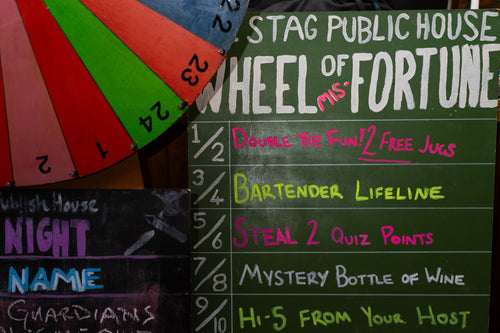 STAG PUBLIC HOUSE
WHEEL OF MIS-FORTUNE
1/2 DOUBLE THE FUN! 2 FREE JUGS
3/4 BARTENDER LIFELINE
5/6 STEAL 2 QUIZ POINTS
7/8 MYSTERY BOTTLE OF WINE
9/10 HI-5 FROM YOUR HOST
22
23
24
1
2
House
NIGHT
NAME
GUARDIANS